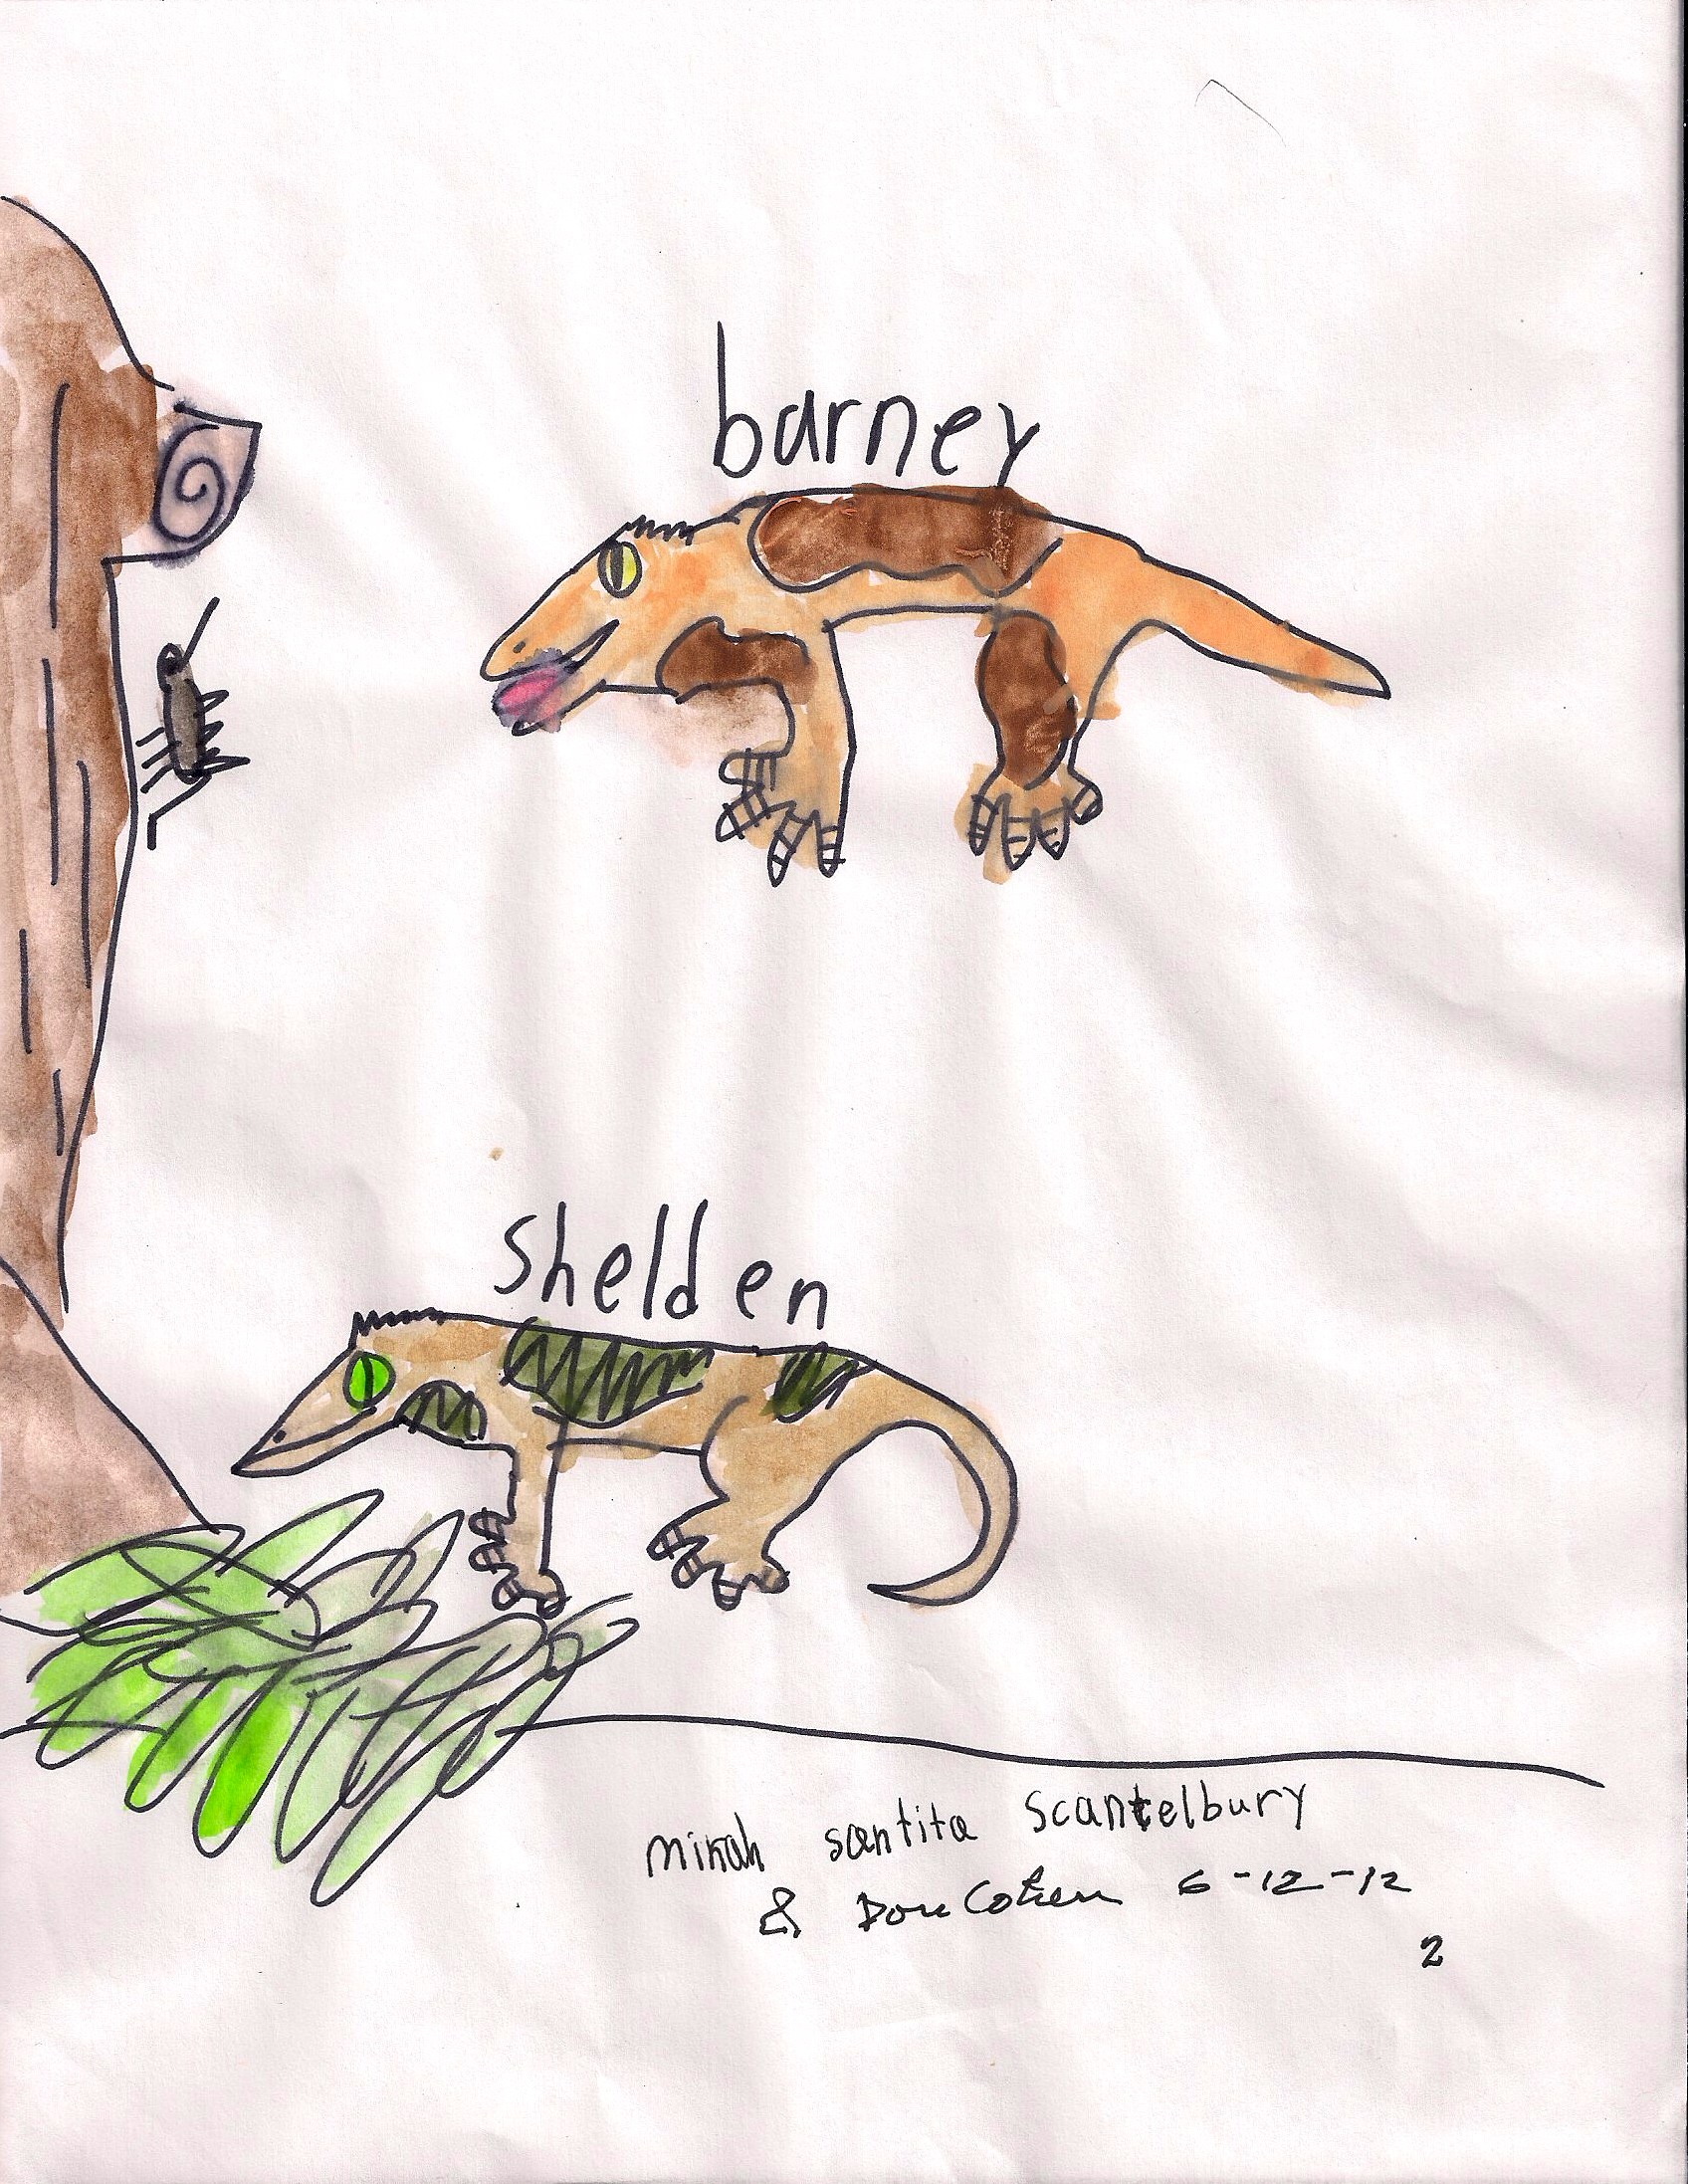 barney
shelden
mirah santita scantelbury
& Don Cohen 6-12-12
2